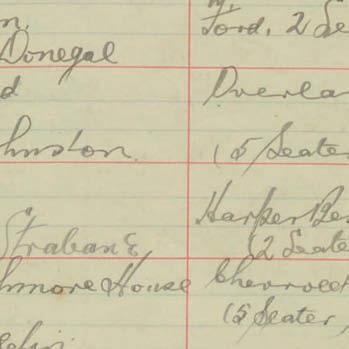 Ford, 2 Se
Donegal
d
Overla
hnston.
(5 Seater
Harper Be
Strabane,
(2 Seate
hmore House
Chevrolet
(5 Seater,